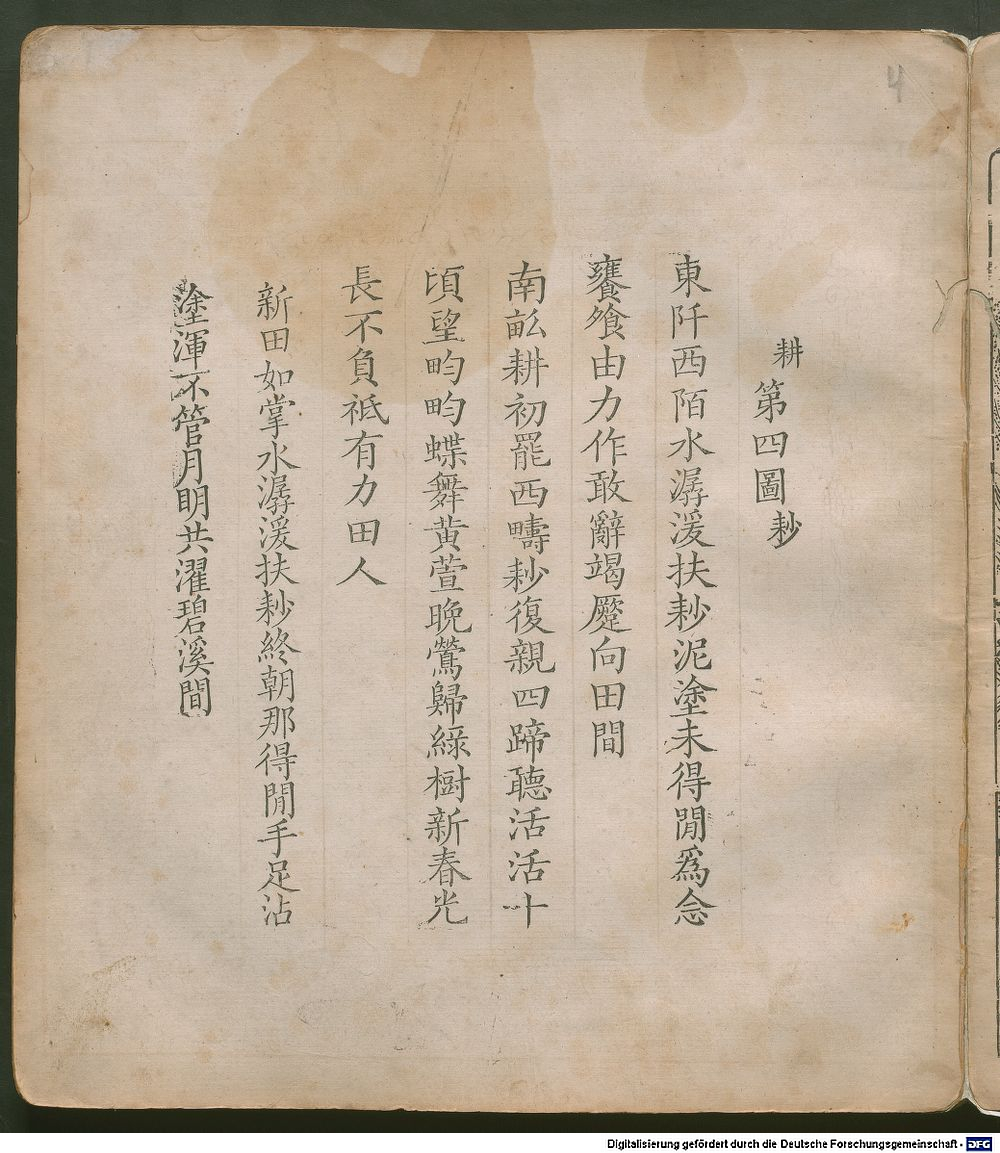 4
耕 第四圖 耖
東阡西陌水潺湲扶耖泥塗未得閒爲念
饔飧由力作敢辭竭蹷向田間
南畝耕初罷西疇耖復親四蹄聽活活十
頃望畇畇蝶舞黃萱晚鶯歸綠樹新春光
長不負祗有力田人
新田如掌水潺湲扶耖終朝那得閒手足沾
塗渾不管月明共濯碧溪間
Digitalisierung gefördert durch die Deutsche Forschungsgemeinschaft - DFG